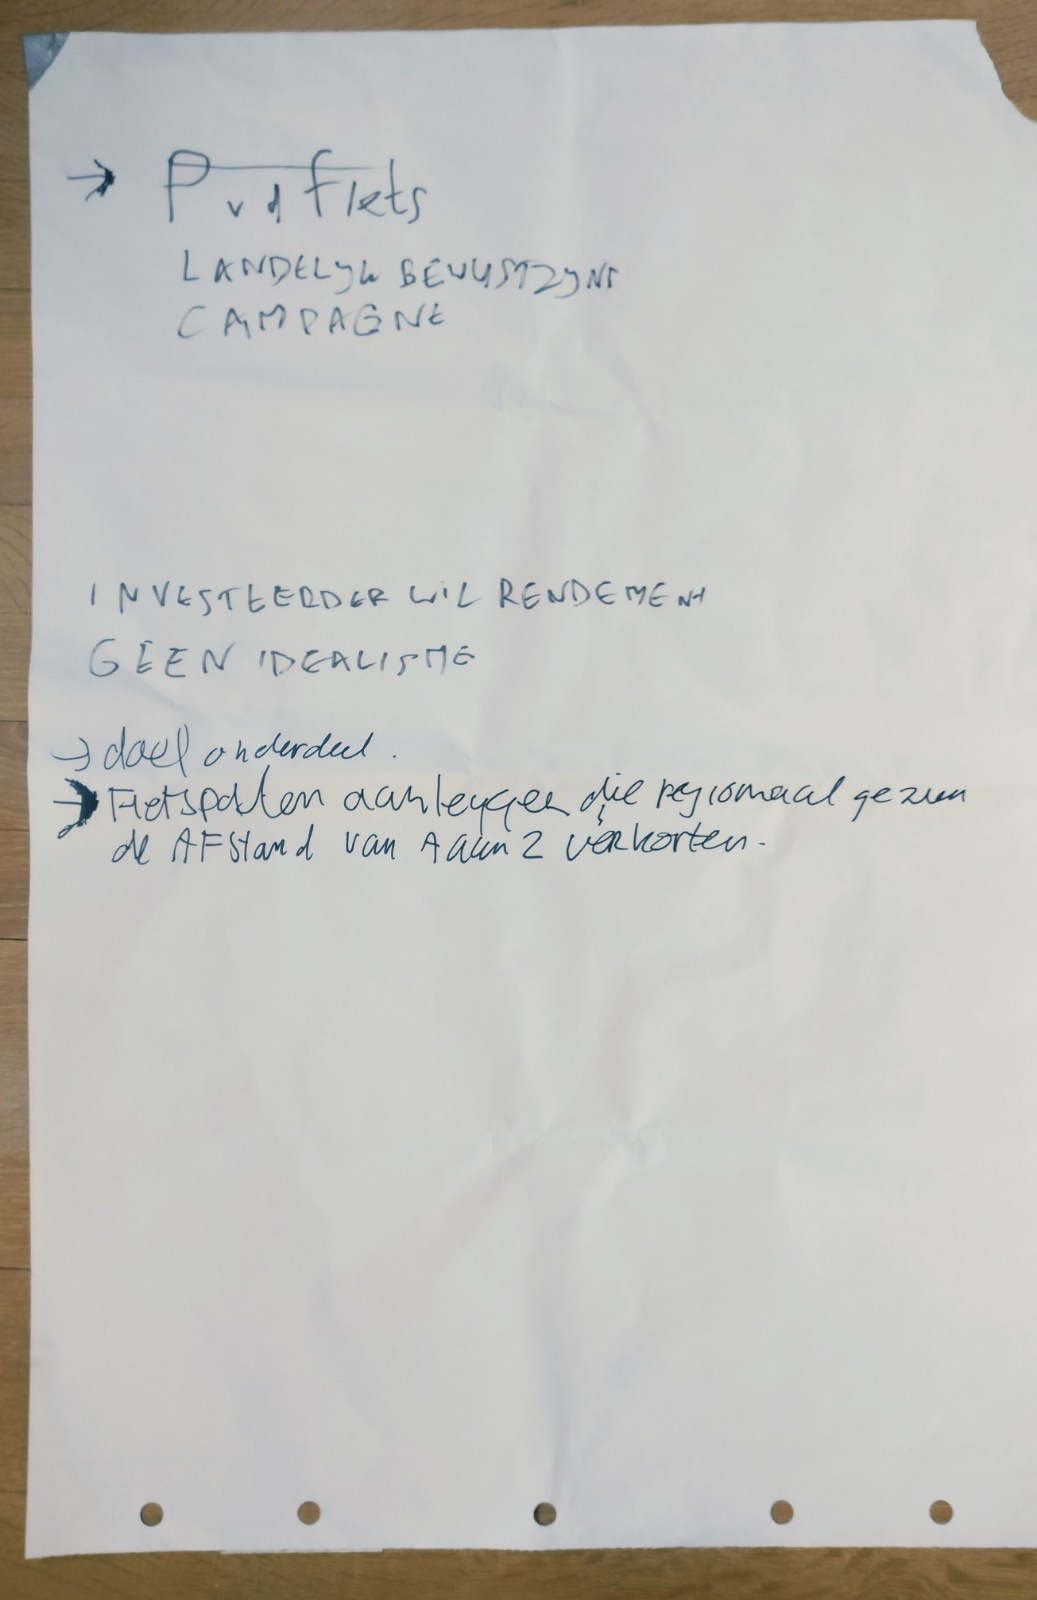 → PvdFiets
LANDELYK BEWUSTZYNS
CAMPAGNE
INVESTEERDER WIL RENDEMENT
GEEN IDEALISME
→ doel onderdeel.
→ Fietspaden aanleggen die regionaal gezien
de AFstand van A aan Z verkorten.